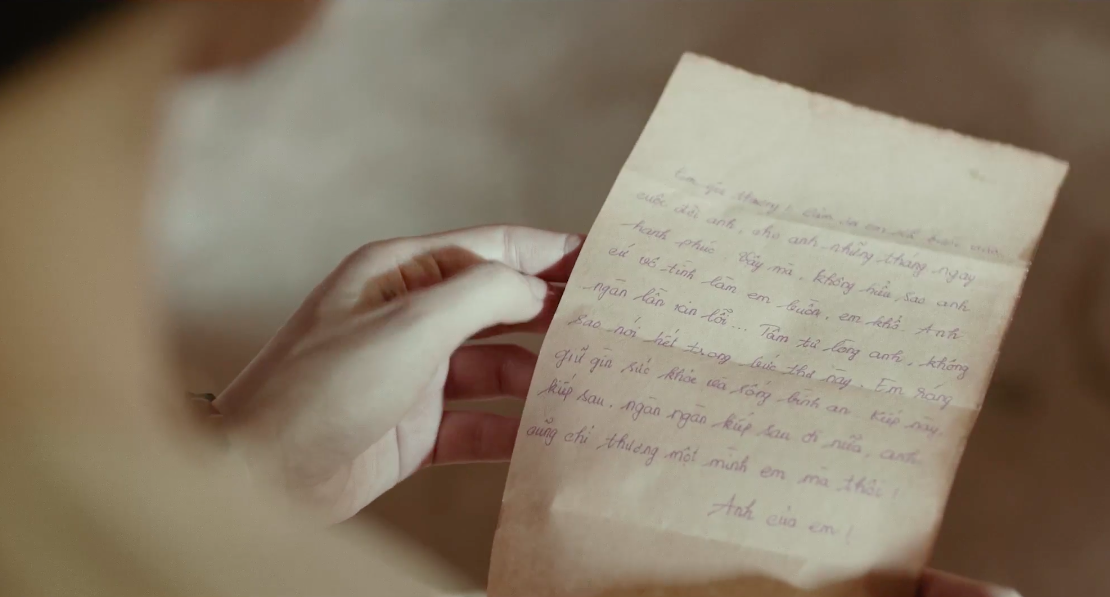 Em yêu thương! Cảm ơn em đã bước vào
cuộc đời anh, cho anh những tháng ngày
hạnh phúc. Vậy mà, không hiểu sao anh
cứ vô tình làm em buồn, em khổ. Anh
ngàn lần xin lỗi... Tâm tư lòng anh, không
sao nói hết trong bức thư này. Em ráng
giữ gìn sức khỏe và sống bình an. Kiếp này,
kiếp sau, ngàn ngàn kiếp sau đi nữa, anh
cũng chỉ thương một mình em mà thôi!
Anh của em!